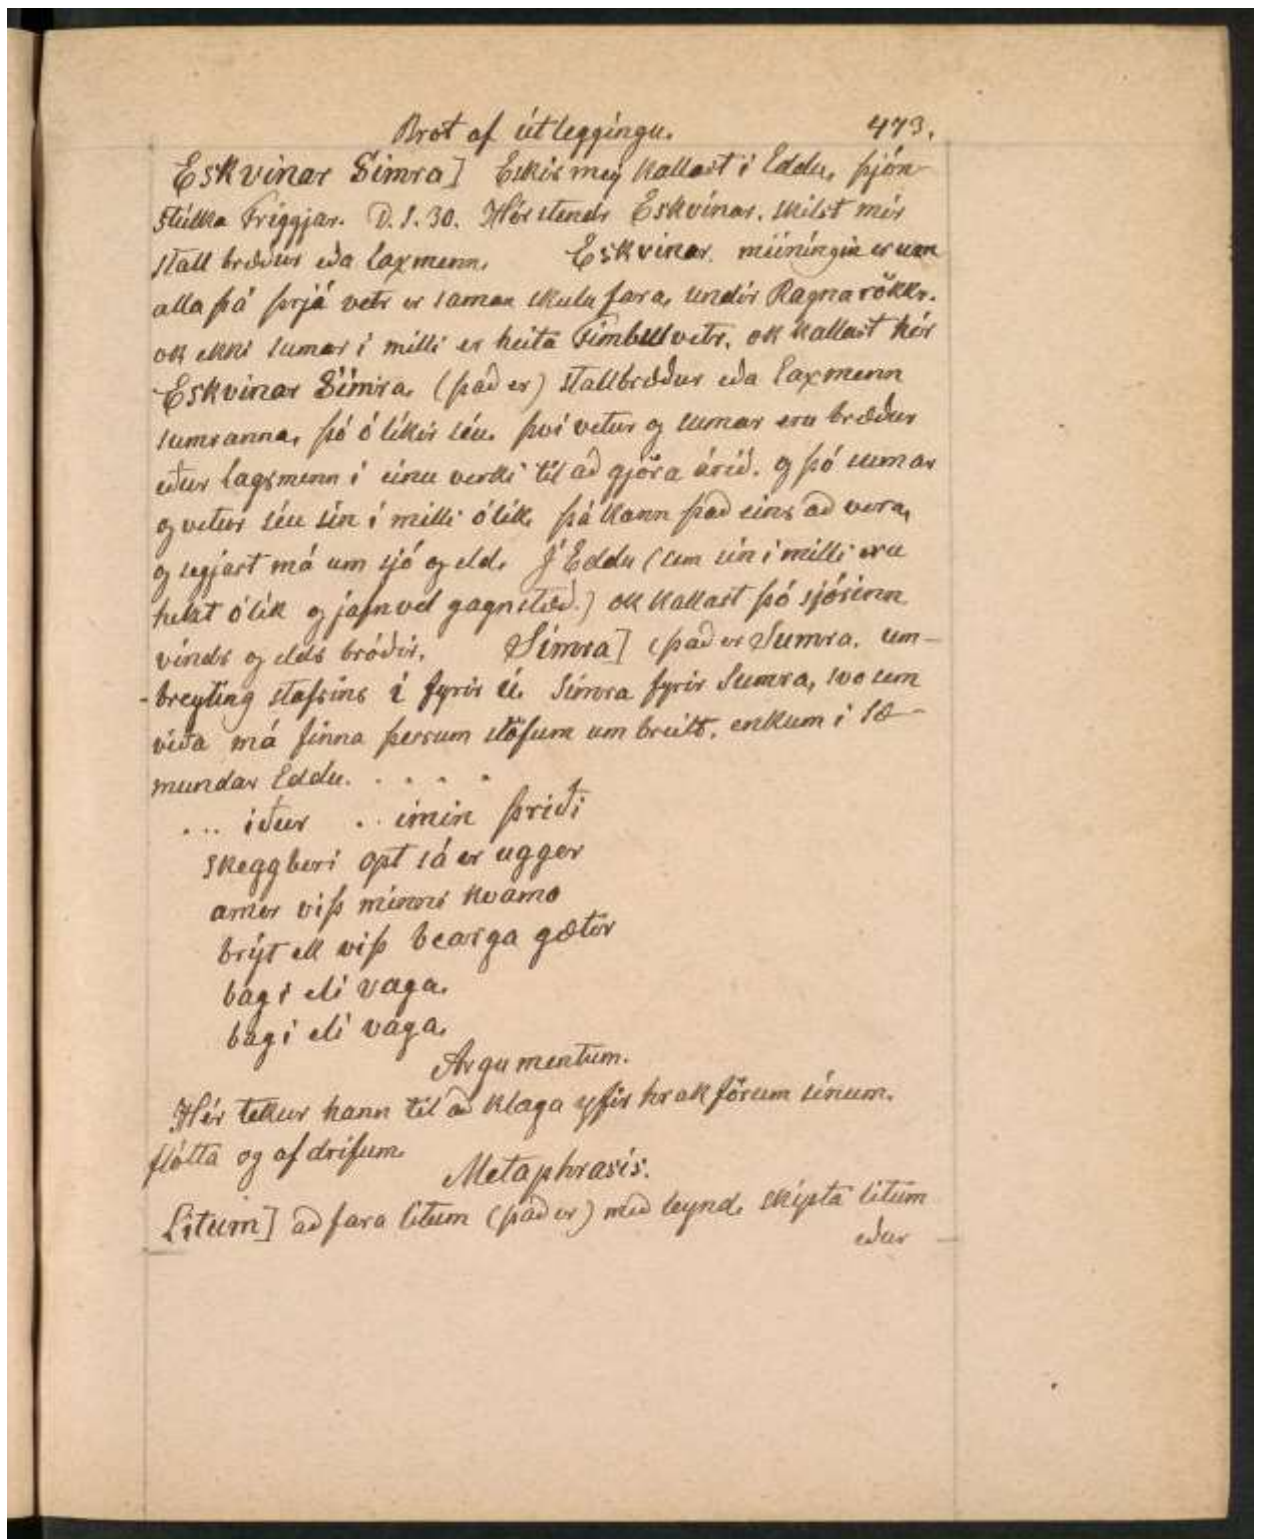 Brot af útleggíngu. 473.
Eskvinar Simra] Eskis mey kallast i Eddu, þjón-
stúlka Friggjar. D.S. 30. Hér stendr Eskvinar. skilst mér
stall bræður eða laxmenn. Eskvinar. meiníngin er um
alla þá þrjá vetr er saman skulu fara, undir Ragnarökkr.
ok ekki sumar i milli er heita Fimbulvetr, ok kallast hér
Eskvinar Simra, (það er) stallbræður eða laxmenn
sumranna, þó ólíkir séu. því vetur og sumar eru bræður
eður lagsmenn i einu verki til að gjöra árið. og þó sumar
og vetur séu sín i milli ólík, þá kann það eins að vera,
og segjast má um sjó og eld. Í Eddu (sem sín i milli eru
helst ólík og jafnvel gagnstæð.) ok kallast þó sjórinn
vinds og elds bróðir. Simra] (það er Sumra. um-
-breyting stafsins í fyrir ú. Simra fyrir Sumra, svo sum
viða má finna þessum stöfum um breitt, enkum i Sæ-
mundar Eddu. . . . .
... iður .. imin þriði
skeggberi opt sá er uggor
amor viþ minni kvamo
brýt ek viþ bearga gætor
bag i eli vaga.
bag i eli vága.
Argumentum.
Hér tekur hann til að klaga yfir hrakförum sínum.
flótta og afdrifum.
Metaphrasis.
Litum] að fara litum (það er) með leynd, skipta litum
eður